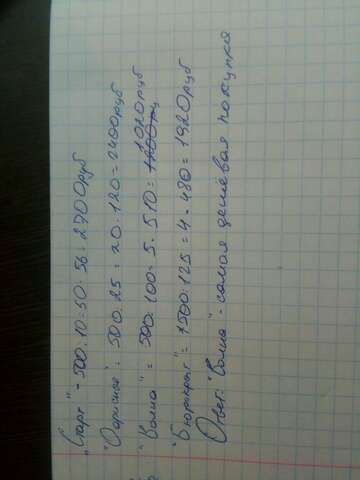 "Старт" - 500:10=50· 56=2800руб
"Офисная": 500:25=20·120=2400руб
"Волна" = 500:100=5·510= 1020руб
"Бюрократ" = 500:125=4·480=1920руб
Ответ: "Волна" - самая дешёвая покупка